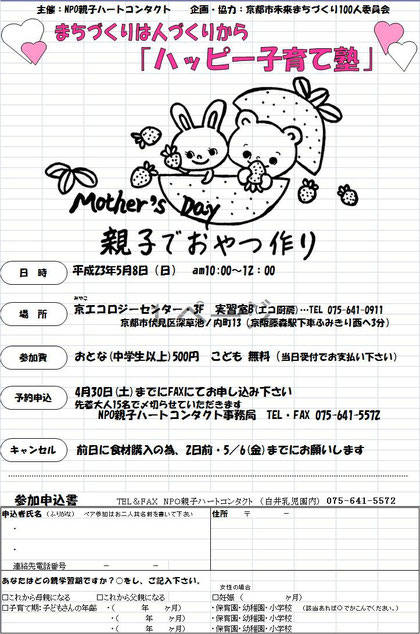 主催：NPO親子ハートコンタクト　　企画・協力：京都市未来まちづくり100人委員会
まちづくりは人づくりから
「ハッピー子育て塾」
Mother's Day
親子でおやつ作り
日 時　平成23年5月8日（日）　am10:00～12：00
場 所　京エコロジーセンター　3F　実習室B(エコ厨房)…TEL 075-641-0911
みやこ
京都市伏見区深草池ノ内町13（京阪藤森駅下車ふみきり西へ3分）
参加費　おとな(中学生以上)500円　こども 無料（当日受付でお支払い下さい）
予約申込　4月30日(土)までにFAXにてお申し込み下さい
先着大人15名で〆切らせていただきます
NPO親子ハートコンタクト事務局　TEL・FAX 075-641-5572
キャンセル　前日に食材購入の為、2日前・5／6(金)までにお願いします
参加申込書　TEL＆FAX　NPO親子ハートコンタクト　（白井乳児園内）　075-641-5572
申込者氏名（ふりがな）　ペア参加はお二人共名前を書いて下さい　住所　〒　　－
・
・
連絡先電話番号　　－　　－
あなたはどの親学習期ですか？○をし、ご記入下さい。　女性の場合
□これから母親になる　□これから父親になる　□妊娠（　　ヶ月）
□子育て期：子どもさんの年齢　・（　　年　　ヶ月）　・保育園・幼稚園・小学校　（該当あれば○でかこんでください。）
・（　　年　　ヶ月）　・保育園・幼稚園・小学校